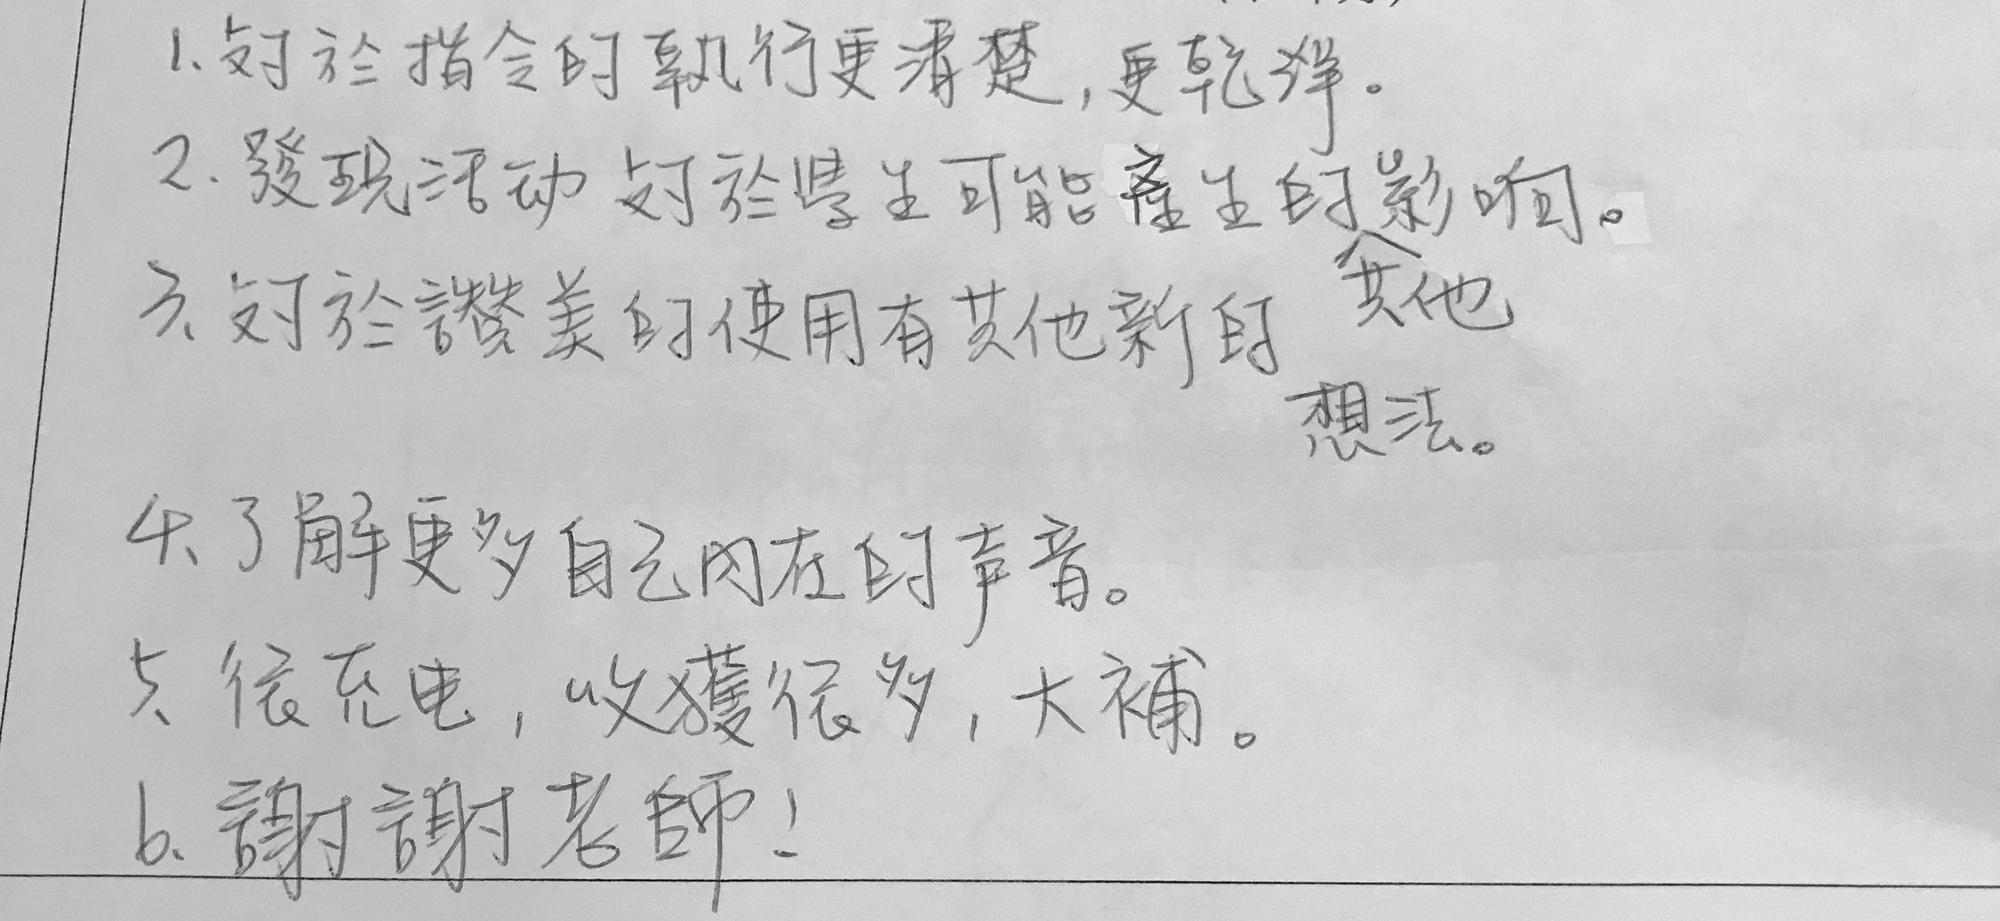 1. 对於指令的執行更清楚,更乾淨。
2. 發現活动对於學生可能產生的影响。
其他
3. 对於讚美的使用有其他新的
想法。
4. 了解更多自己內在的声音。
5. 很充电,收獲很多,大補。
6. 謝謝老師!